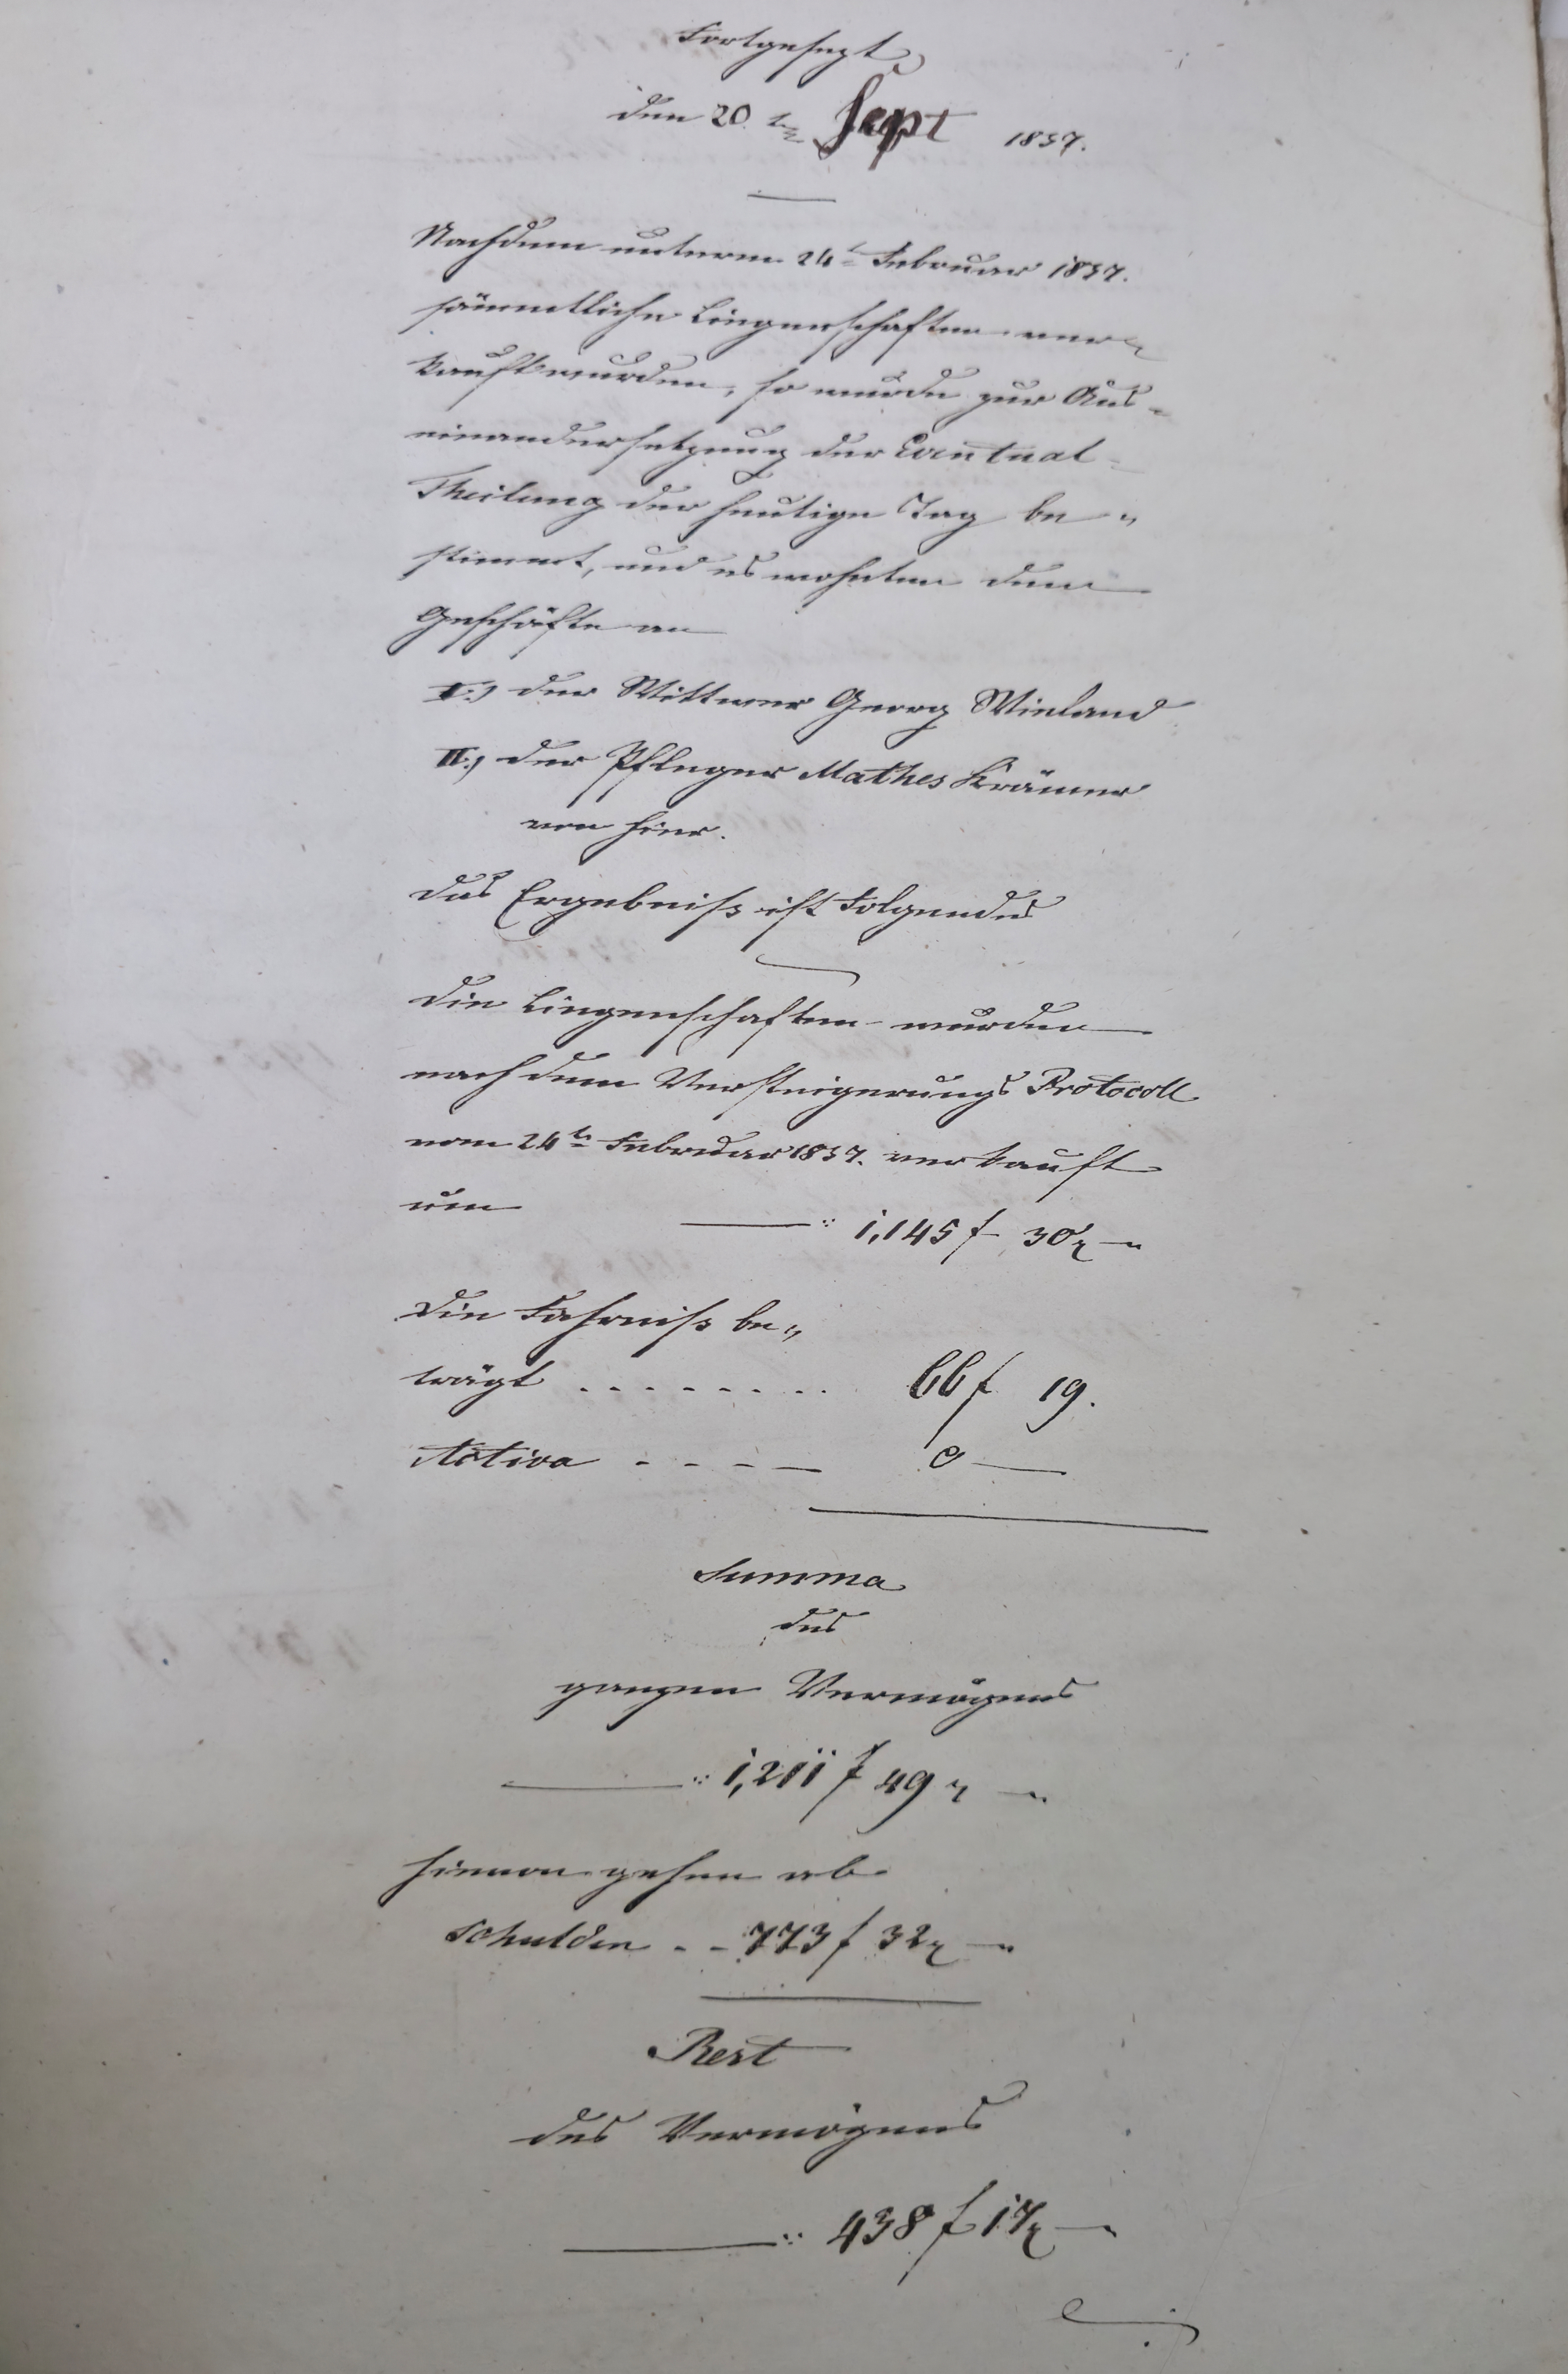 Fortgesezt
den 20ten Sept 1837.
Nachdem unterm 24t Februar 1837.
sämmtliche Liegenschaften ver=
kauft wurden, so wurde zur Aus=
einandersetzung der Eventual=
Theilung der heutige Tag be„
stimmt, und es wohnten dem
Geschäfte an
I.) der Wittwer Georg Wieland
II.) der Pfleger Mathes Krämer
von hier.
Das Ergebniß ist Folgendes
Die Liegenschaften wurden
nach dem Versteigerungs Protocoll
vom 24ten Februar 1837. verkauft
um
1,145 f 30 x
Die Fahrniß be„
trägt . . . . . . . . 66 f 19.
Activa - - - - 0 —
Summa
des
ganzen Vermögens
1,211 f 49 x
Hievon gehen ab
Schulden - - 773 f 32 x
Rest
des Vermögens
438 f 17 x